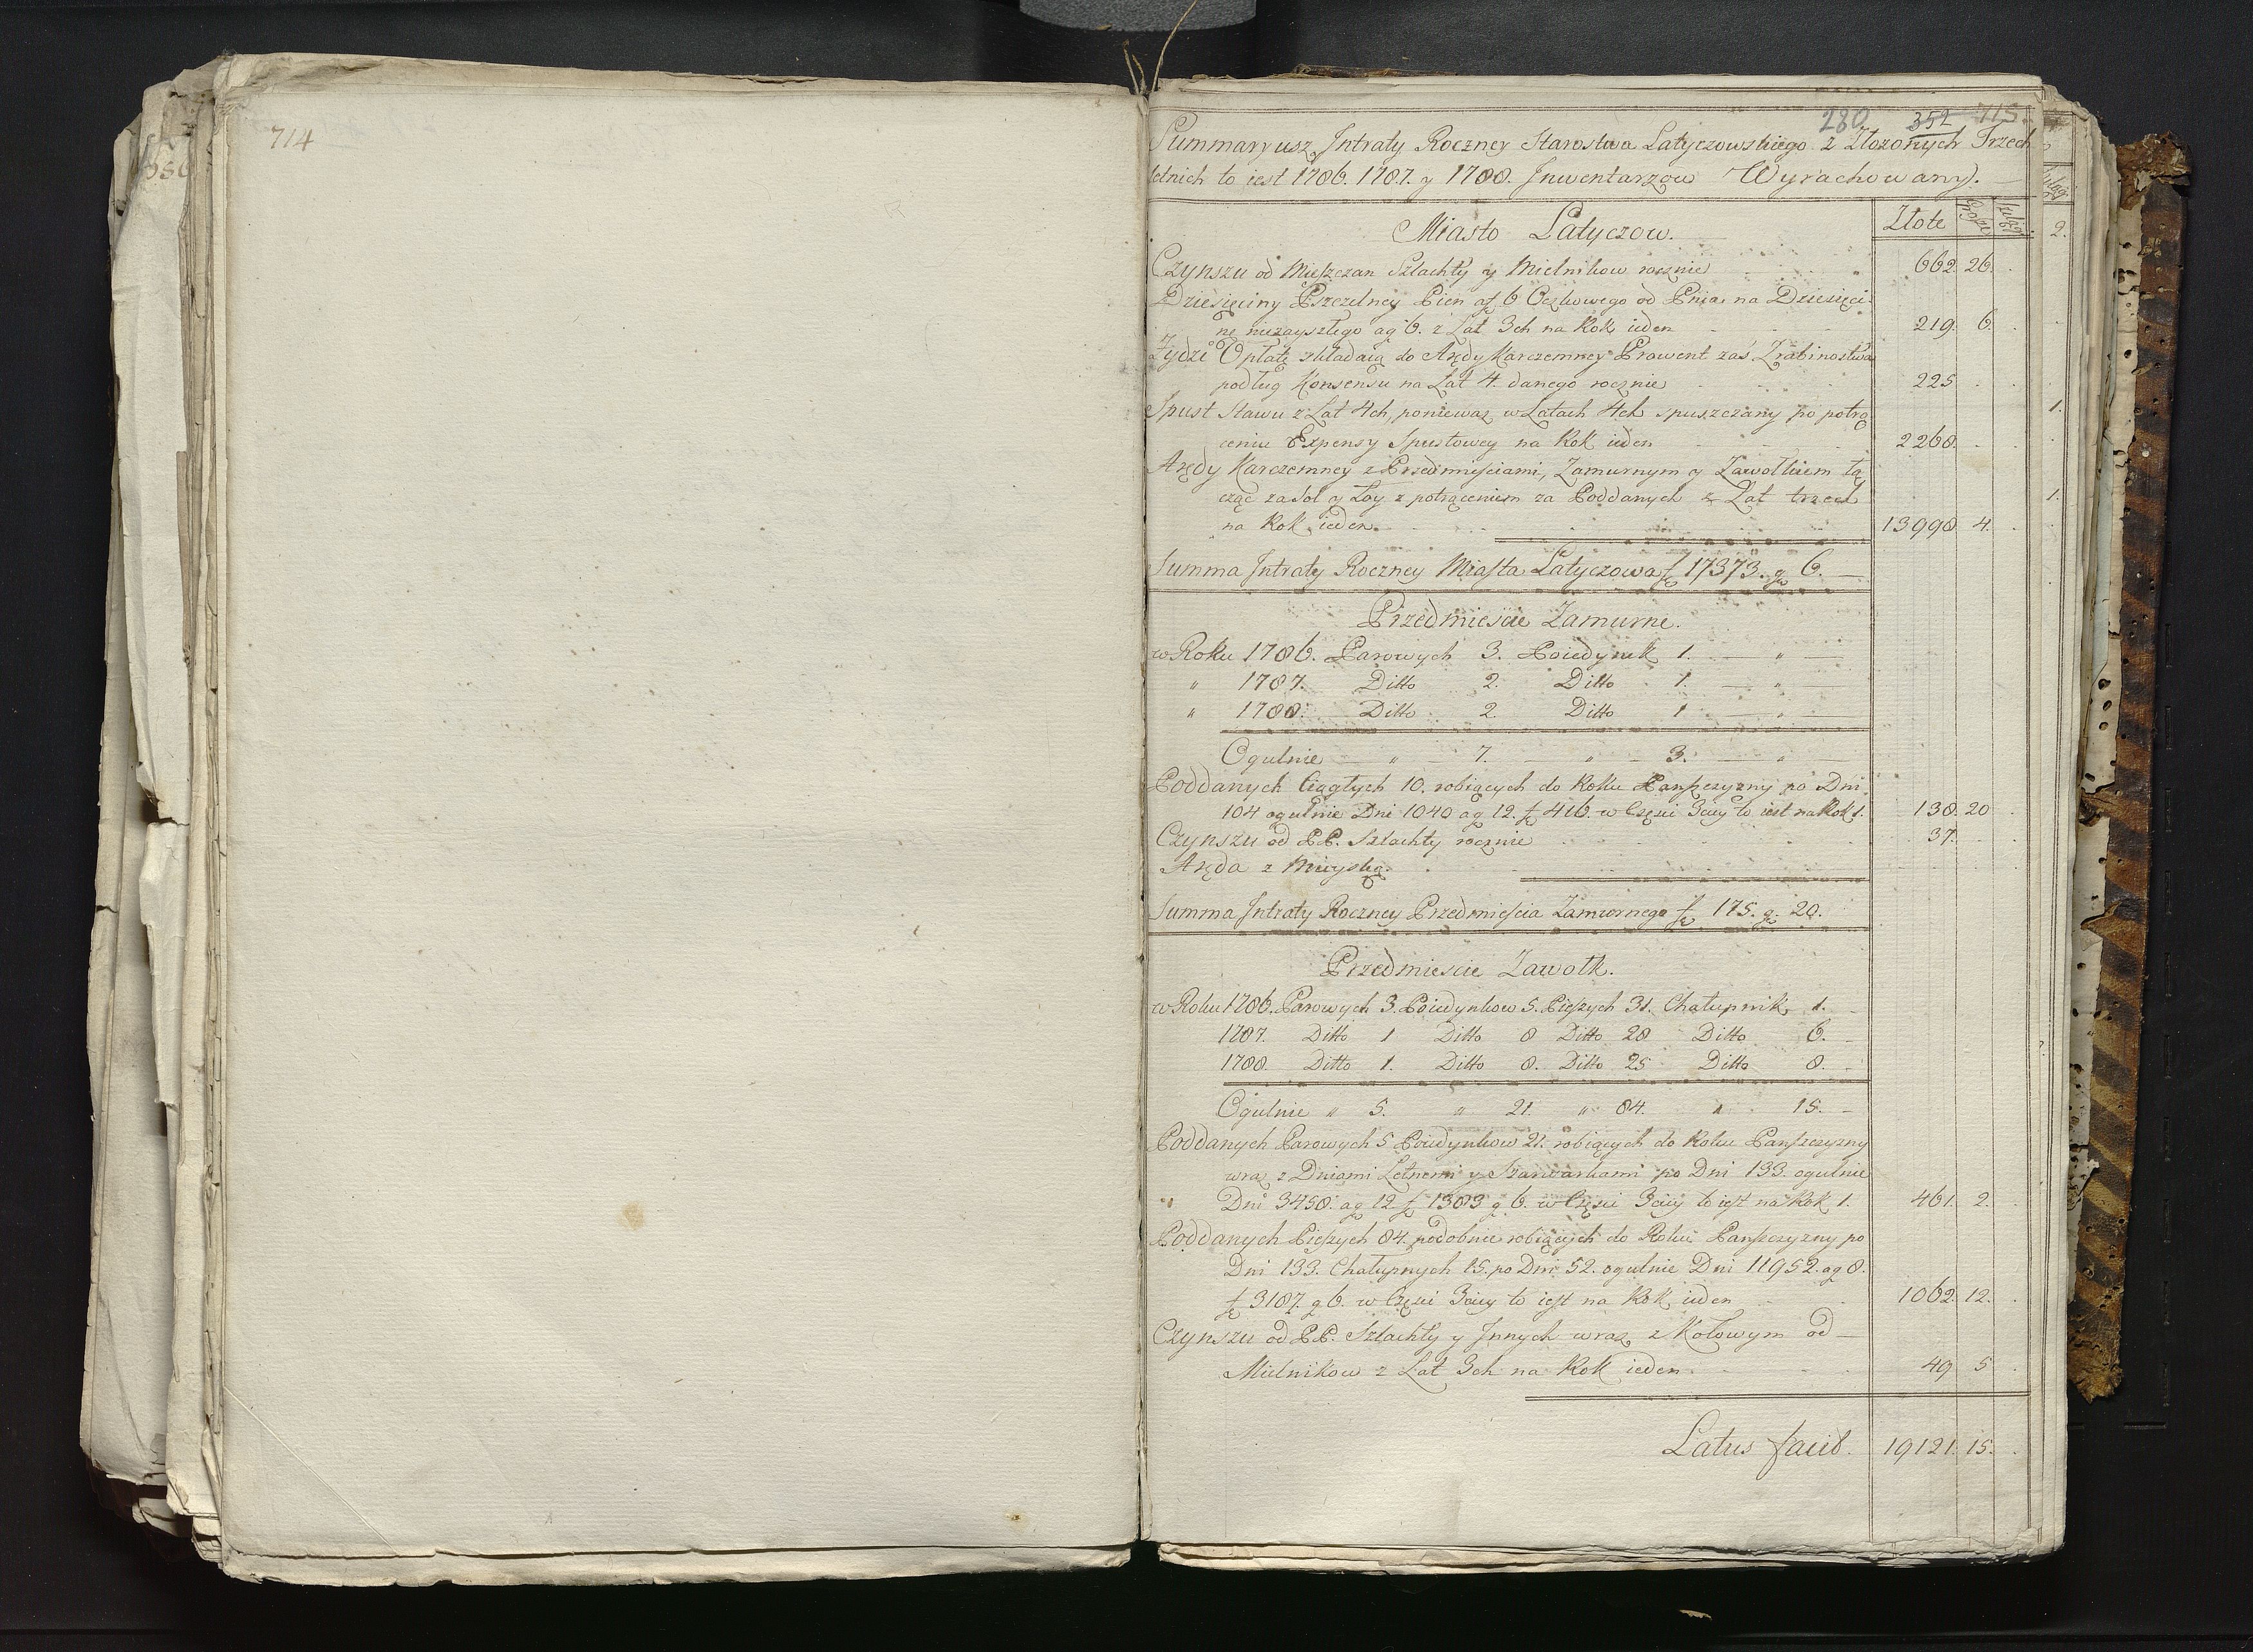 714
280 352 715.
Summaryusz Intraty Roczney Starostwa Latyczowskiego z Złożonych Trzech
letnich to iest 1786. 1787. y 1788. Inwentarzow Wyrachowany.
Miasto Latyczow. Złote Grosze Szelągi
Czynszu od Mieszczan Szlachty y Mielnikow rocznie 662. 26.
Dziesięciny Pszczelney Pien af 6 Oczkowego od Pnia na Dziesięci
nę niezayszłego ag 6. z Lat 3ch na Rok ieden 219. 6.
Żydzi Opłatę składaią do Arędy Karczemney Prowent zaś Zrabinostwa
podług Konsensu na Lat 4. danego rocznie 225
Spust Stawu z Lat 4ch, ponieważ w Latach 4ch spuszczany po potrą
ceniu Expensy Spustowey na Rok ieden 2268.
Arędy Karczemney z Przedmieściami, Zamurnym y Zawołkiem łą
cząc za Sol y Łoy z potrąceniem za Poddanych z Lat trzech
na Rok ieden 13998 4.
Summa Intraty Roczney Miasta Latyczowa f 17373. g 6.
Przedmieście Zamurne.
w Roku 1786. Parowych 3. Poiedynek 1. "
" 1787. Ditto 2. Ditto 1. "
" 1788. Ditto 2. Ditto 1 "
Ogulnie " 7. " 3. "
Poddanych Ciągłych 10. robiących do Roku Panszczyzny po Dni
104 ogulnie Dni 1040 ag 12. f 416. w Części 3ciey to iest na Rok 1. 138. 20
Czynszu od PP. Szlachty rocznie 37.
Aręda z Mieyską.
Summa Intraty Roczney Przedmieścia Zamurnego f 175. g. 20.
Przedmieście Zawołk.
w Roku 1786. Parowych 3. Poiedynkow 5. Pieszych 31. Chałupnik 1.
1787. Ditto 1 Ditto 8 Ditto 28 Ditto 6.
1788. Ditto 1. Ditto 8. Ditto 25 Ditto 8.
Ogulnie " 5. " 21. " 84. " 15.
Poddanych Parowych 5 Poiedynkow 21. robiących do Roku Panszczyzny
wraz z Dniami Letnemi y Szarwarkami po Dni 133. ogulnie
Dni 3458. ag 12. f 1383 g 6. w Części 3ciey to iest na Rok 1. 461. 2.
Poddanych Pieszych 84. podobnie robiących do Roku Panszczyzny po
Dni 133. Chałupnych 15. po Dni 52. ogulnie Dni 11952. ag 8.
f 3187. g 6. w Części 3ciey to iest na Rok ieden 1062. 12.
Czynszu od PP. Szlachty y Innych wraz z Kołowym od
Mielnikow z Lat 3ch na Rok ieden 49 5
Latus facit. 19121. 15.